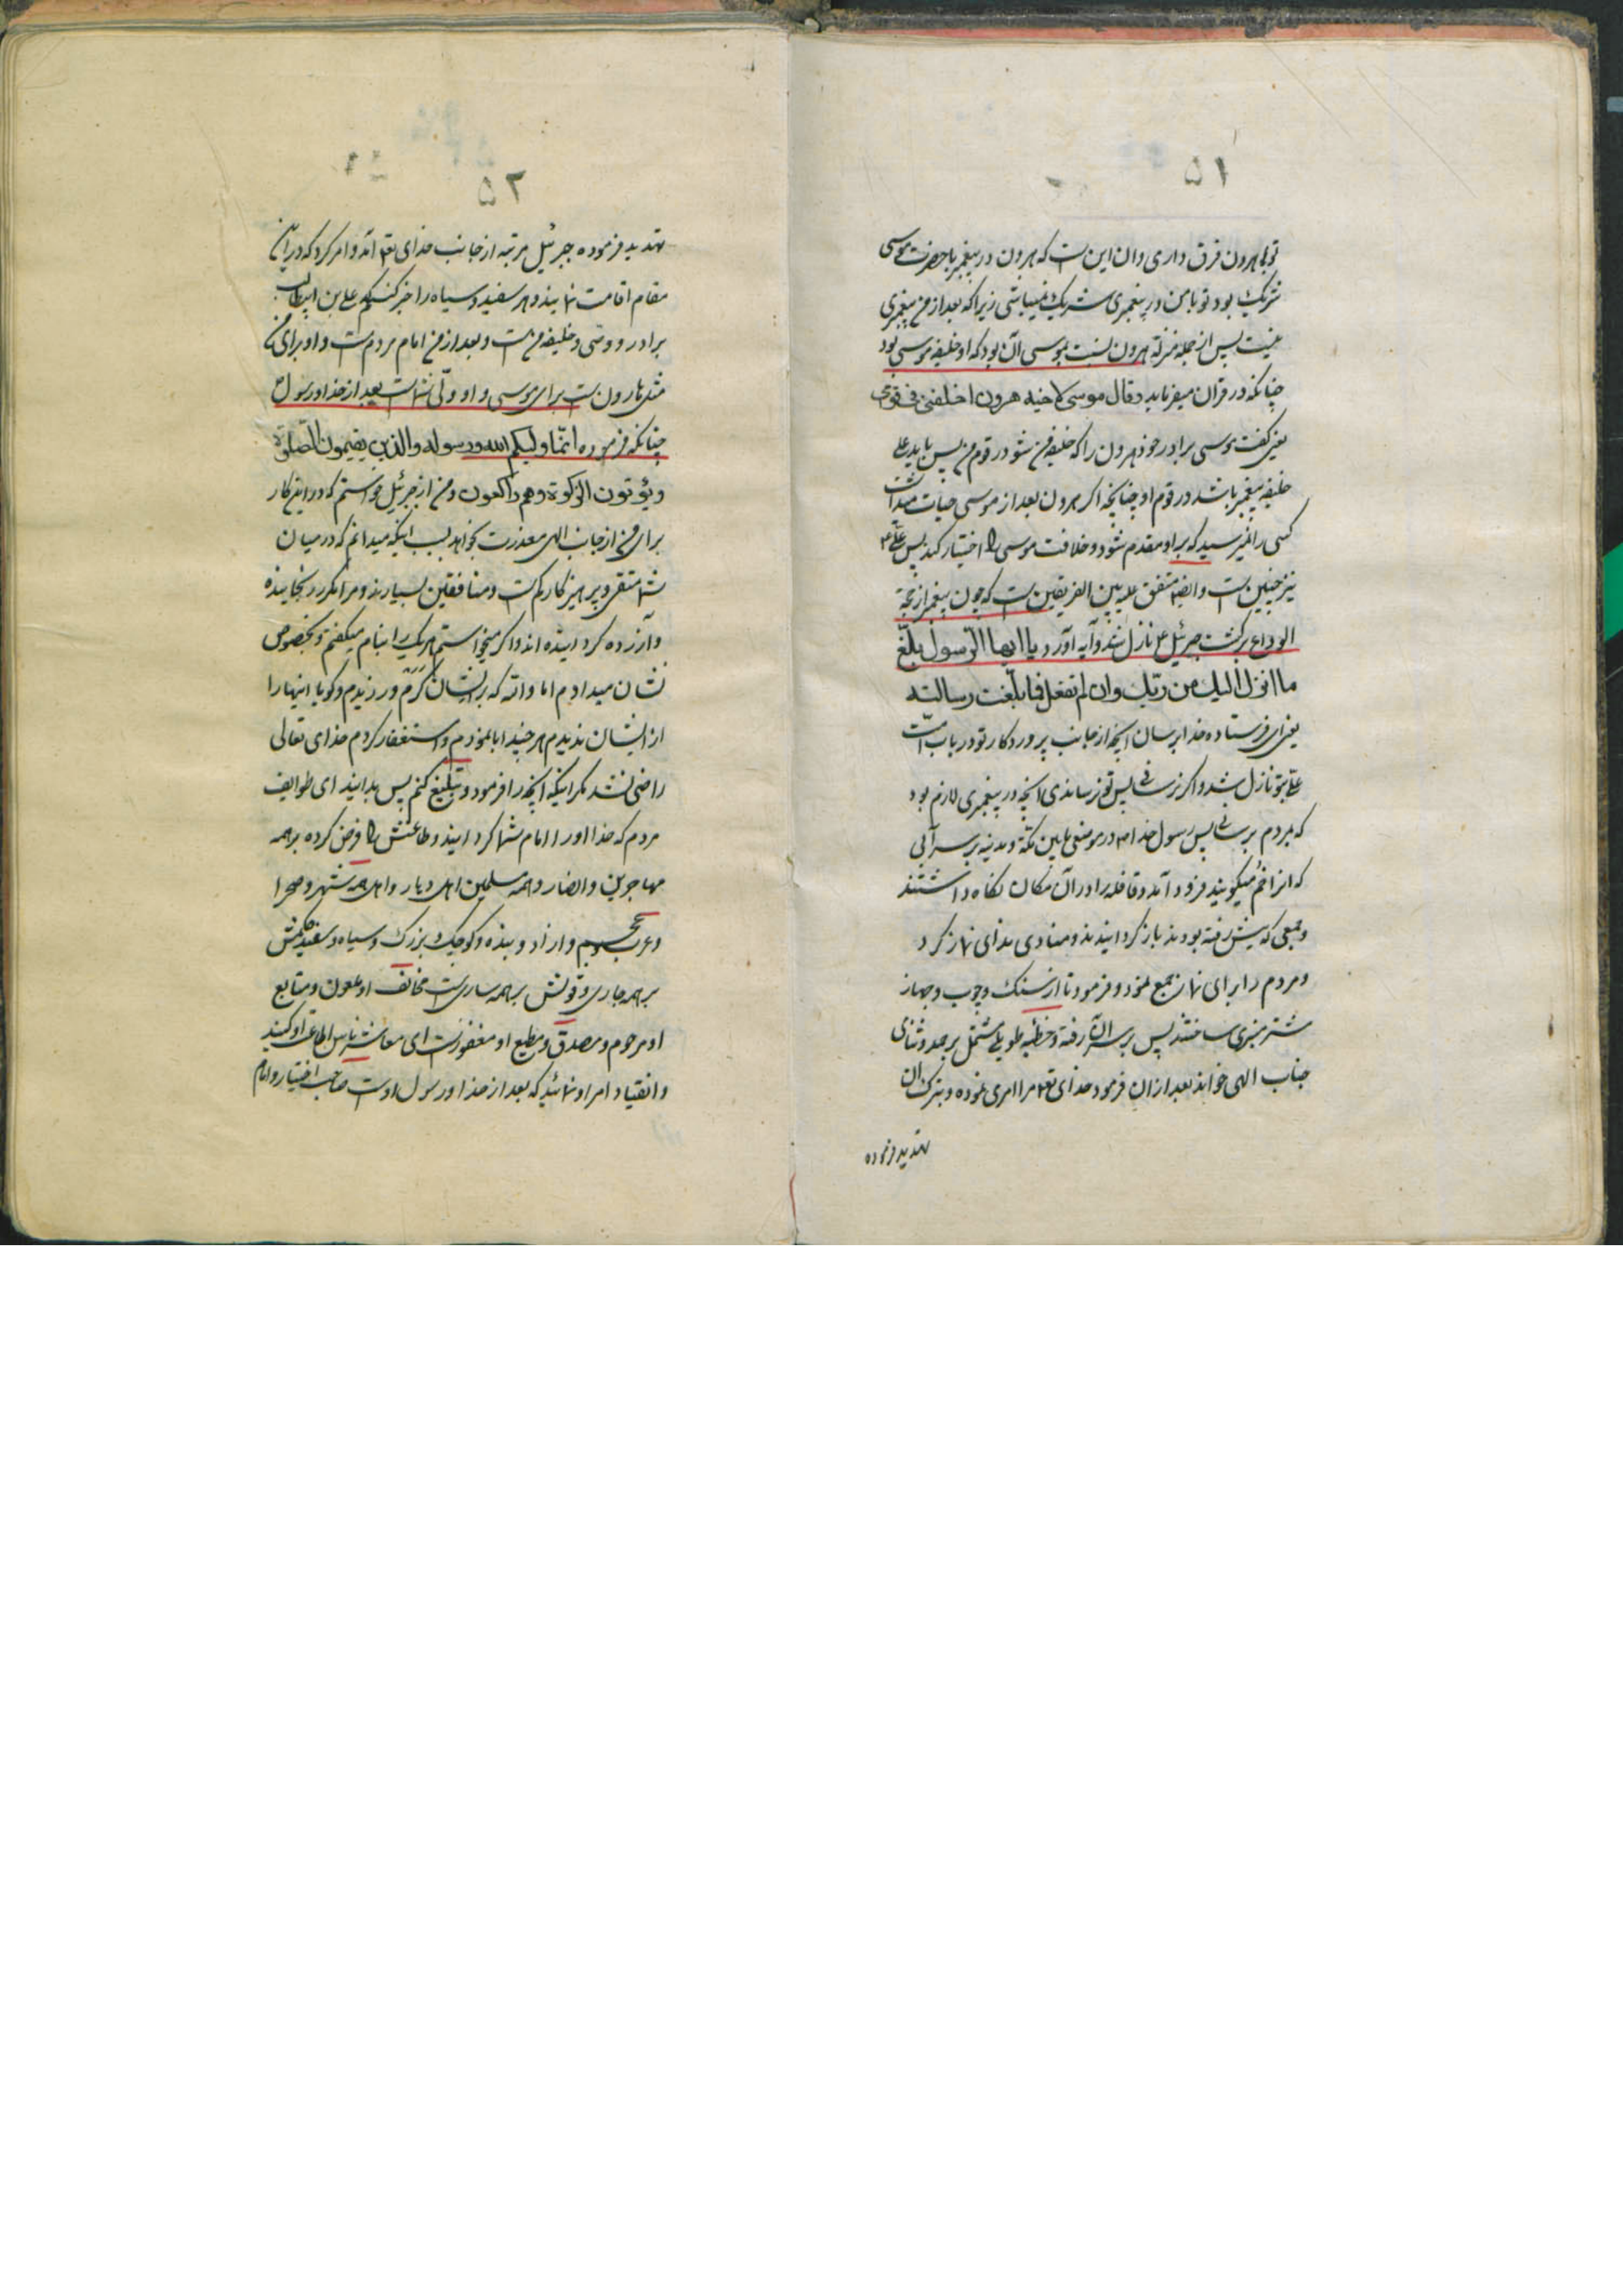 ۵۱
تو با هرون فرق داری و ان این است که هرون در پیغمبر با حضرت موسی
شریک بود تو با من در پیغمبری شریک نمیباشی زیرا که بعد از من پیغمبری
نیست پس از جمله منزله هرون نسبت بموسی آن بود که او خلیفه موسی بود
چنانکه در قران میفرماید و قال موسی لاخیه هرون اخلفنی فی قومی
یعنی گفت موسی برادر خود هرون را که خلیفه من شو در قوم من پس باید علی
خلیفه پیغمبر باشد در قوم او چنانچه اگر هرون بعد از موسی حیات میداشت
کسی را نمیرسید که بر او مقدم شود و خلافت موسی را اختیار کند پس علی ع
نیز چنین است و ایضا متفق علیه بین الفریقین است که چون پیغمبر از حجة
الوداع برگشت جبرئیل ع نازل شد و آیه آورد یا ایها الرسول بلّغ
ما انزل الیک من ربّک وان لم تفعل فما بلّغت رسالته
یعنی ای فرستاده خدا برسان آنچه از جانب پروردکار تو در باب امامت
علی بتو نازل شد و اکر نرسانی پس تو نرساندی آنچه در پیغمبری لازم بود
که بمردم برسانی پس رسول خدا ص در موضعی مابین مکّة و مدینه بر سر آبی
که انرا خم میکویند فرود آمد و قافله را در آن مکان نکاه داشتند
و جمعی که پیش رفته بودند باز کردانیدند و منادی ندای نماز کرد
و مردم را برای نماز جمع نمود و فرمود تا از سنک و چوب و جهاز
شتر منبری ساختند پس بر سر آن رفته و خطبه طویلی مشتمل بر حمد و ثنای
جناب الهی خواند بعد از ان فرمود خدای تعه مرا امری نموده و بترک ان
تهدید فرموده
۵۲
تهدید فرموده جبرئیل مرتبه از جانب خدای تعه آمد و امر کرد که در این
مقام اقامت نمایند و هر سفید و سیاه را خبر کنم که علی بن ابیطالب
برادر و وصی و خلیفه من است و بعد از من امام مردم است و او برای من
مثل هارون است برای موسی و او ولّی شما است بعد از خدا و رسول ص
چنانکه فرموده انّما ولیکم الله و رسوله والذین یقیمون الصّلوة
ویؤتون الزکوة وهم راکعون و من از جبرئیل خواستم که در این کار
برای من از جانب الهی معذرت بخواهد بسبب اینکه میدانم که در میان
شما متقی و پرهیزکار کم است و منافقین بسیارند و مرا مکرر رنجانیده
و آزرده کردانیده اند و اکر میخواستم هر یک را بنام میکفتم و بخصوص
نشان میدادم اما والله که بر ایشان کرم ورزیدم و کویا اینها را
از ایشان ندیدم هر چند ابا نمودم و استغفار کردم خدای تعالی
راضی نشد مکر اینکه آنچه را فرمود و تبلیغ کنم پس بدانید ای طوایف
مردم که خدا او را امام شما کردانید و طاعتش را فرض کرده بر همه
مهاجرین و انصار و همه مسلمین اهل دیار و اهل همه شهر و صحرا
و عرب و عجم و ازاد و بنده و کوچک بزرک و سیاه و سفید حکمش
بر همه جاری و قولش بر همه ساریست مخالف او ملعون و متابع
او مرحوم و مصدق و مطیع او مغفور است ای معاشر ناس اطاعت او کنید
و انقیاد امر او نمائید که بعد از خدا و رسول اوست صاحب اختیار و امام